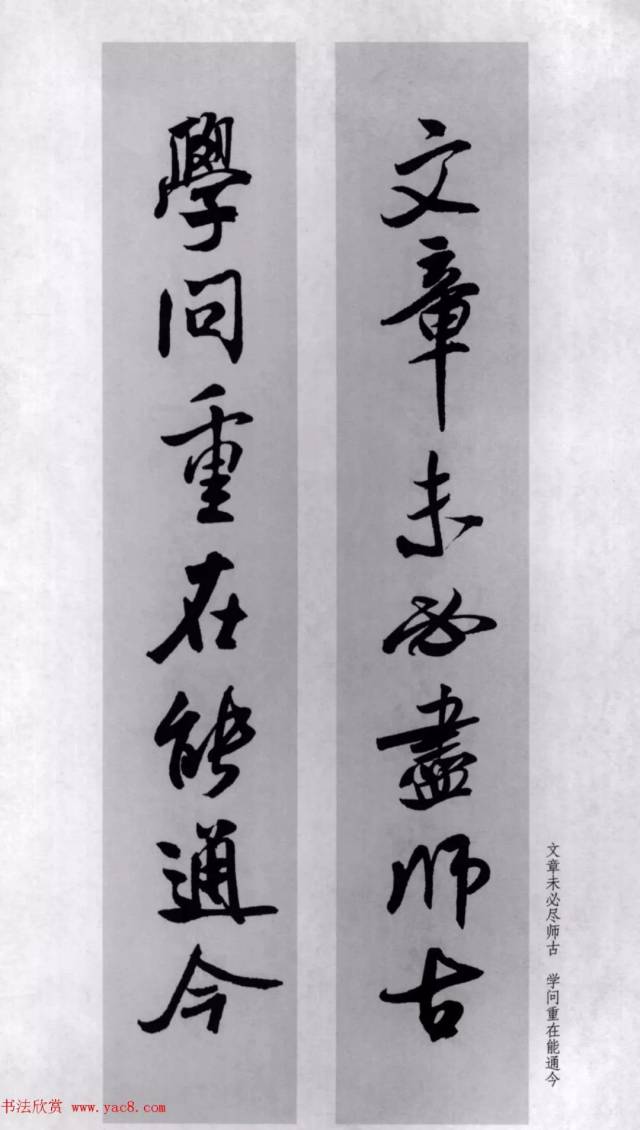 文章未必盡师古
學问重在能通今
文章未必尽师古 学问重在能通今
书法欣赏 www.yac8.com